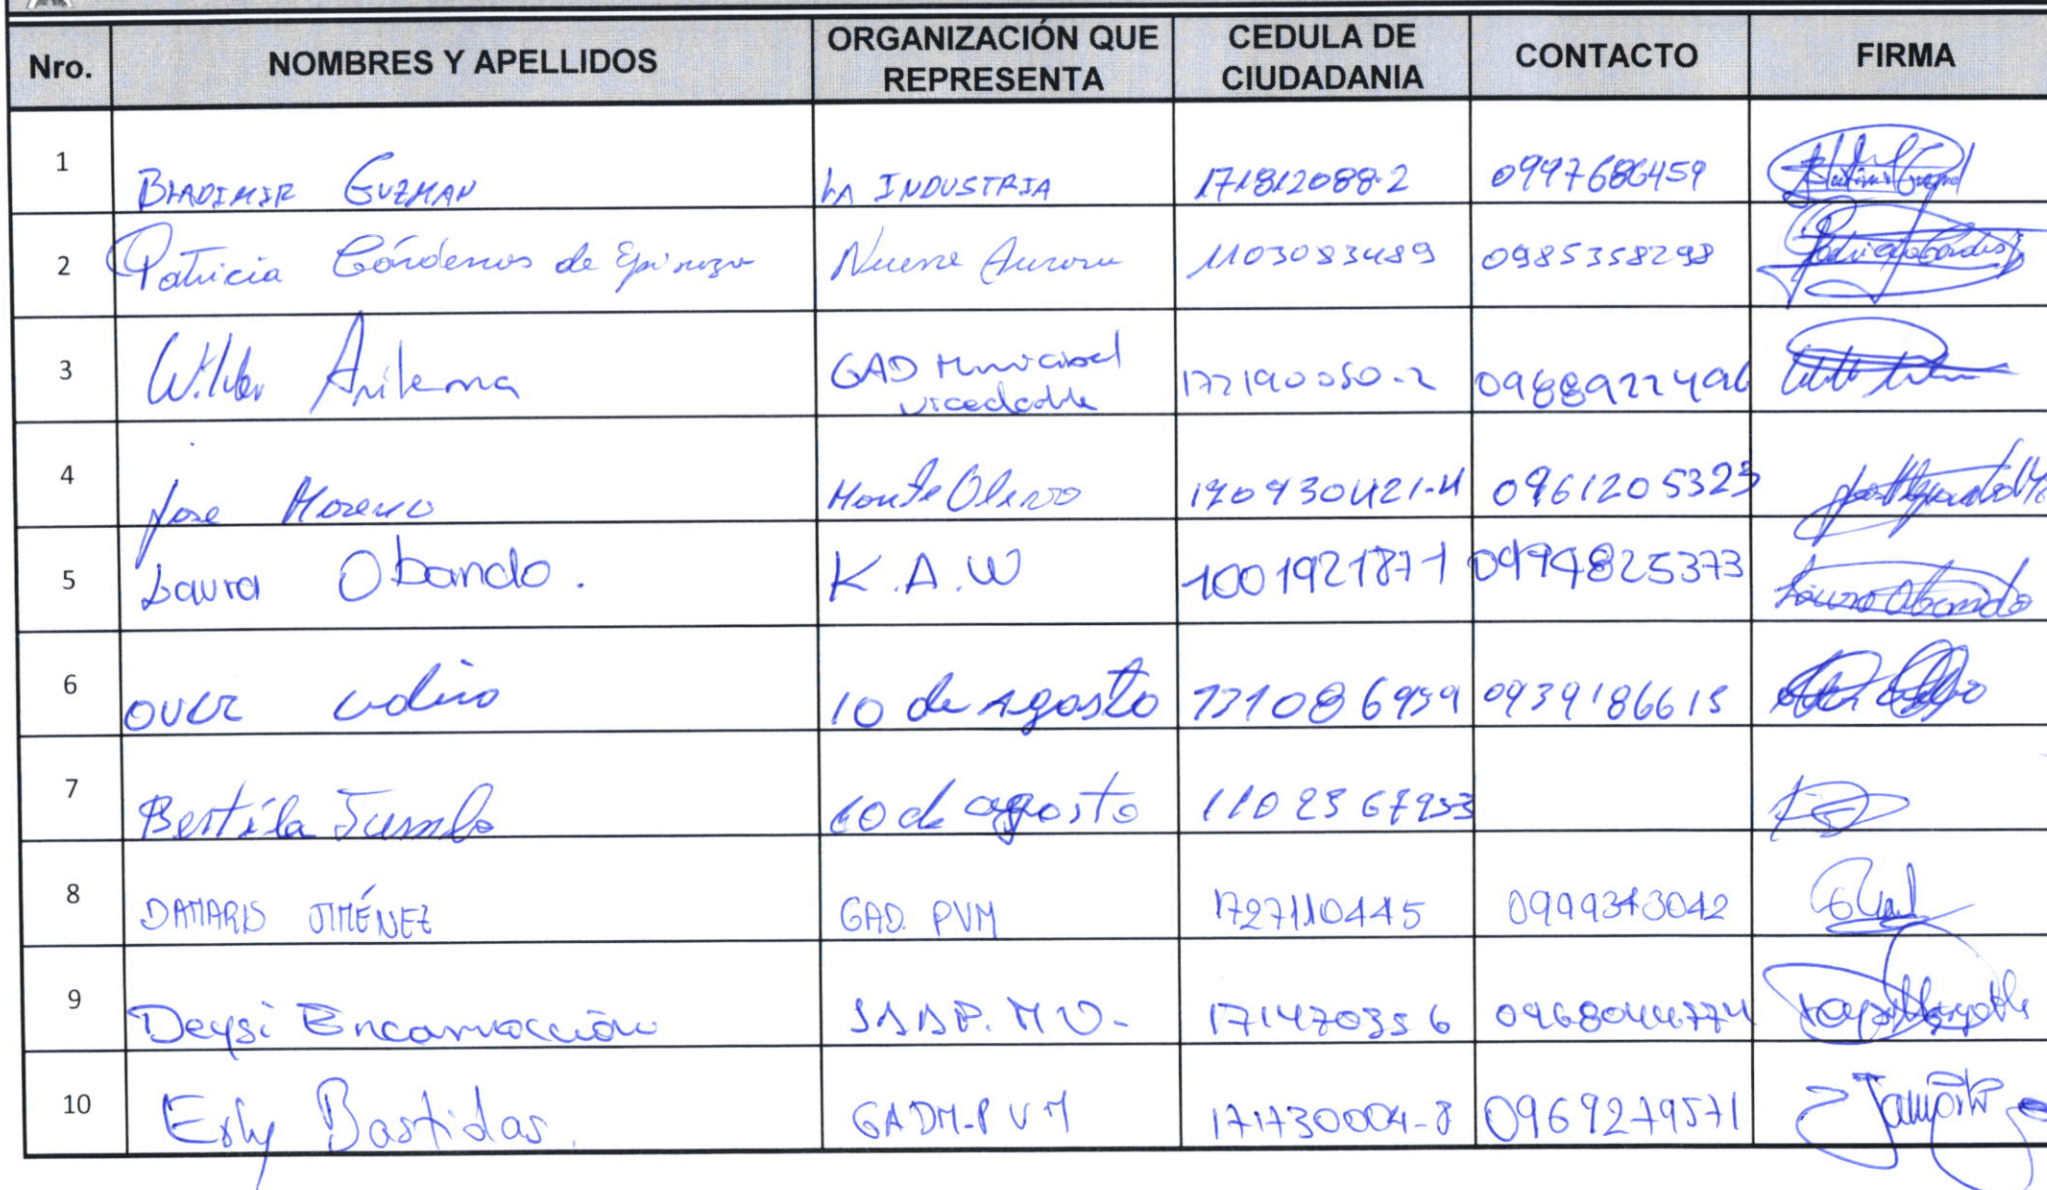 Nro. NOMBRES Y APELLIDOS ORGANIZACIÓN QUE REPRESENTA CEDULA DE CIUDADANIA CONTACTO FIRMA
1 BLADIMIR GUZMAN LA INDUSTRIA 171812088-2 0997686459
2 Patricia Cárdenas de Espinoza Nueva Aurora 1103083489 0985358298
3 Wilder GAD Municipal 172190050-2 0988922496
4 Jose Moreno Monte Olivo 170930421-4 0961205323
5 Laura Obando. K.A.W 1001921871 0994825373 Laura Obando
6 OVER 10 de agosto 0939186615
7 Bertila Jumbo 10 de agosto 1102367953
8 DAMARIS JIMÉNEZ GAD. PVM 1727110445 0999343042
9 Deysi Encarnación 1714703556 0968044774
10 Bastidas. GADM-PVM 171730004-8 0969279571